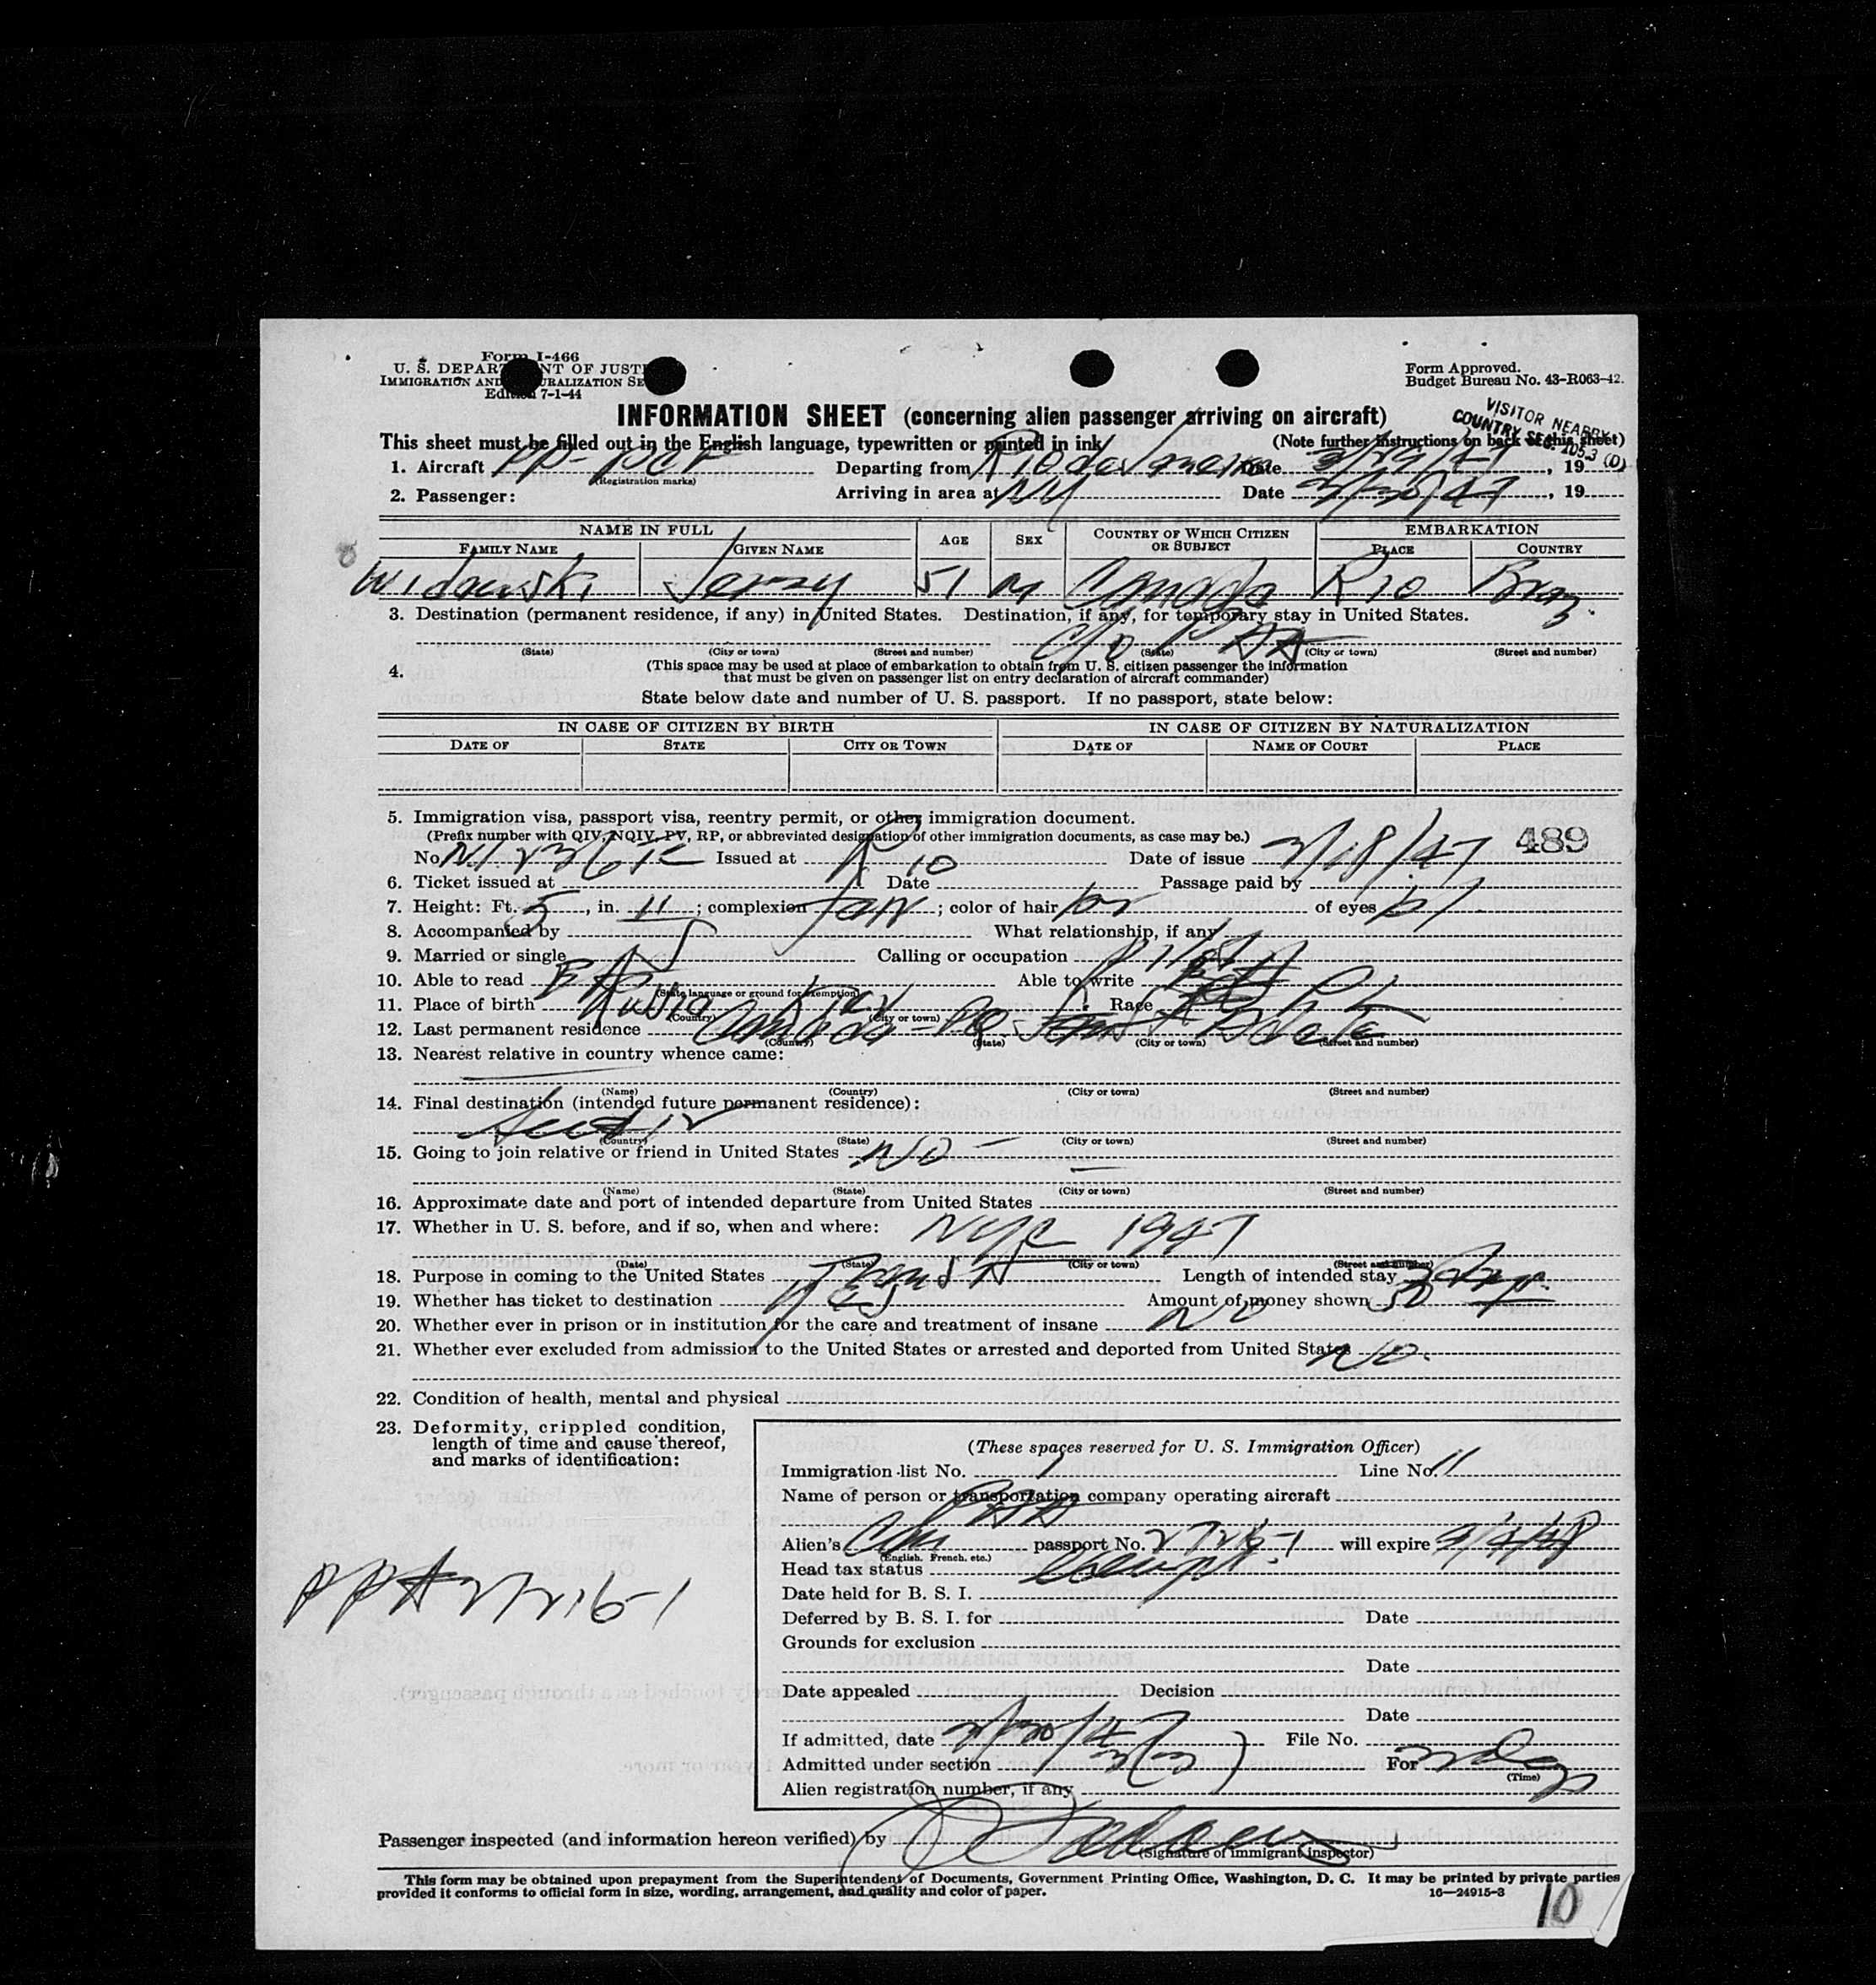 Form I-466
U. S. DEPART NT OF JUSTI
IMMIGRATION AND URALIZATION SE
Edition 7-1-44
Form Approved.
Budget Bureau No. 43-R063-42.
INFORMATION SHEET (concerning alien passenger arriving on aircraft)
VISITOR NEARBY
COUNTRY SEC. 105.3 (D)
This sheet must be filled out in the English language, typewritten or printed in ink (Note further instructions on back of this sheet)
1. Aircraft Departing from Rio de Janeiro Date , 19
(Registration marks)
2. Passenger: Arriving in area at NY Date 3/30/47, 19
NAME IN FULL AGE SEX COUNTRY OF WHICH CITIZEN OR SUBJECT EMBARKATION
FAMILY NAME GIVEN NAME PLACE COUNTRY
Widawski Jerzy 51 M Canada Rio Braz.
3. Destination (permanent residence, if any) in United States. Destination, if any, for temporary stay in United States.
c/o PAA
(State) (City or town) (Street and number) (State) (City or town) (Street and number)
4. (This space may be used at place of embarkation to obtain from U. S. citizen passenger the information
that must be given on passenger list on entry declaration of aircraft commander)
State below date and number of U. S. passport. If no passport, state below:
IN CASE OF CITIZEN BY BIRTH IN CASE OF CITIZEN BY NATURALIZATION
DATE OF STATE CITY OR TOWN DATE OF NAME OF COURT PLACE
5. Immigration visa, passport visa, reentry permit, or other immigration document.
(Prefix number with QIV, NQIV, PV, RP, or abbreviated designation of other immigration documents, as case may be.)
489
No. Issued at Rio Date of issue 3/18/47
6. Ticket issued at Date Passage paid by
7. Height: Ft. 5, in. 11; complexion fair; color of hair br of eyes bl
8. Accompanied by What relationship, if any
9. Married or single S Calling or occupation Pilot
10. Able to read Able to write
(State language or ground for exemption)
11. Place of birth Russia Race
(Country) (City or town)
12. Last permanent residence Canada - PQ
(Country) (State) (City or town) (Street and number)
13. Nearest relative in country whence came:
(Name) (Country) (City or town) (Street and number)
14. Final destination (intended future permanent residence):
(Country) (State) (City or town) (Street and number)
15. Going to join relative or friend in United States No -
(Name) (State) (City or town) (Street and number)
16. Approximate date and port of intended departure from United States
17. Whether in U. S. before, and if so, when and where: NYC 1947
(Date) (State) (City or town) (Street and number)
18. Purpose in coming to the United States Transit Length of intended stay 3 days
19. Whether has ticket to destination Yes Amount of money shown 50
20. Whether ever in prison or in institution for the care and treatment of insane No
21. Whether ever excluded from admission to the United States or arrested and deported from United States No.
22. Condition of health, mental and physical
23. Deformity, crippled condition,
length of time and cause thereof,
and marks of identification:
(These spaces reserved for U. S. Immigration Officer)
Immigration list No. 1 Line No. 11
Name of person or transportation company operating aircraft
PAA
Alien's Can passport No. will expire
(English, French, etc.)
Head tax status exempt
Date held for B. S. I.
Deferred by B. S. I. for Date
Grounds for exclusion
Date
Date appealed Decision
Date
If admitted, date 3/30/47 File No.
Admitted under section 3(3) For 3 days
(Time)
Alien registration number, if any
Passenger inspected (and information hereon verified) by
(Signature of immigrant inspector)
This form may be obtained upon prepayment from the Superintendent of Documents, Government Printing Office, Washington, D. C. It may be printed by private parties
provided it conforms to official form in size, wording, arrangement, and quality and color of paper. 16—24915-3
10